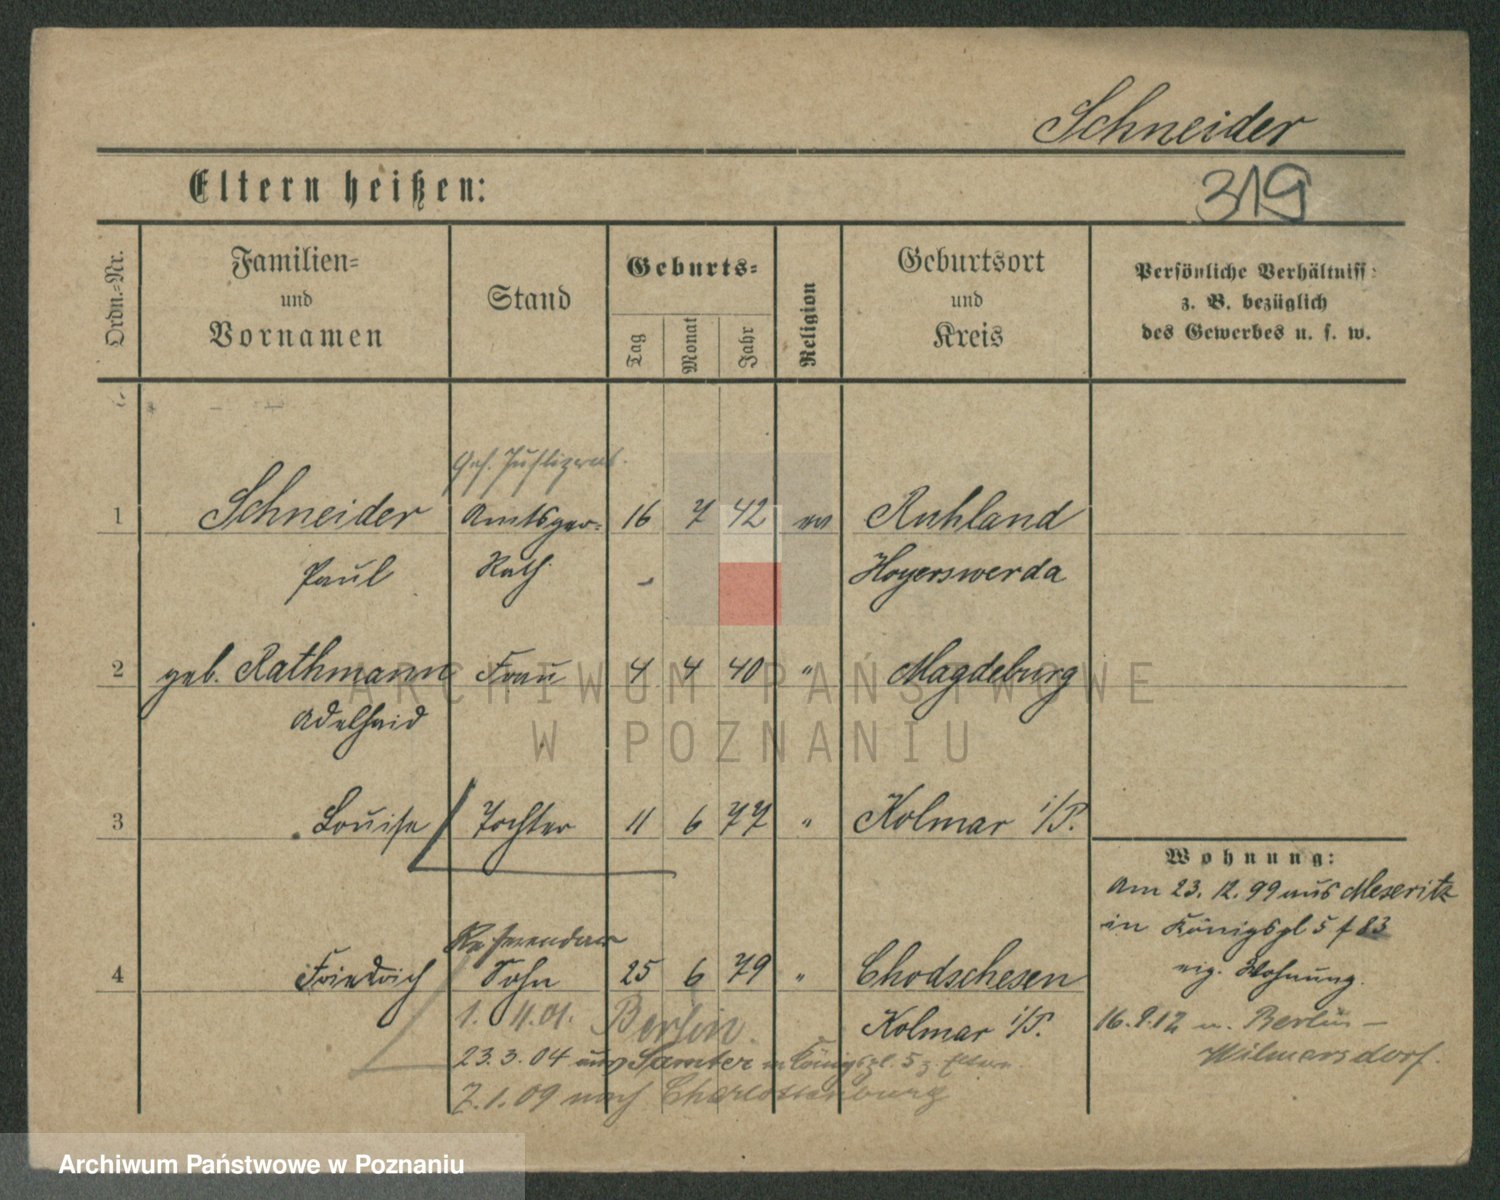 Schneider
Eltern heißen:
319
Ordn.-Nr.
Familien-
und
Vornamen
Stand
Geburts-
Tag
Monat
Jahr
Religion
Geburtsort
und
Kreis
Persönliche Verhältniss:
z. B. bezüglich
des Gewerbes u. s. w.
Geh. Justizrat.
1 Schneider Amtsger- 16 7 42 ev Ruhland
Paul Rath Hoyerswerda
2 geb. Rathmann Frau 4 4 40 " Magdeburg
Adelheid
3 Louise Tochter 11 6 77 " Kolmar i/P.
Wohnung:
Am 23.12.99 aus Meseritz
in Königspl 5 f 83
eig. Wohnung.
16.9.12 n. Berlin –
Wilmersdorf.
Referendar
4 Friedrich Sohn 25 6 79 " Chodschesen
Kolmar i/P.
1. 4.01. Berlin.
23.3.04 aus Samter in Königspl. 5 z. Eltern.
7.1.09 nach Charlottenburg
ARCHIWUM PAŃSTWOWE
W POZNANIU
Archiwum Państwowe w Poznaniu